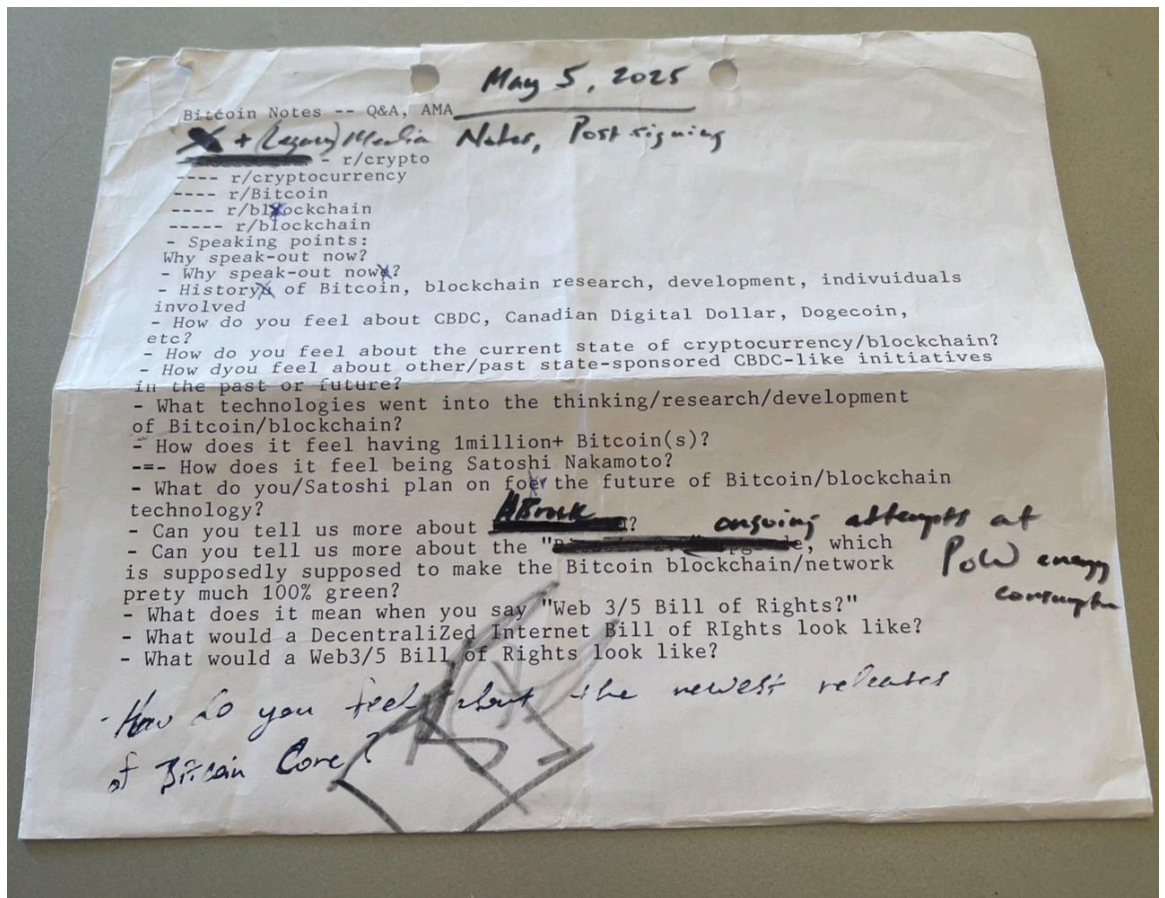 May 5, 2025
Bitcoin Notes -- Q&A, AMA
X + (Legacy) Media Notes, Post signing
- r/crypto
---- r/cryptocurrency
---- r/Bitcoin
---- r/blxockchain
----- r/blockchain
- Speaking points:
Why speak-out now?
- Why speak-out now?
- History of Bitcoin, blockchain research, development, indivuiduals
involved
- How do you feel about CBDC, Canadian Digital Dollar, Dogecoin,
etc?
- How do you feel about the current state of cryptocurrency/blockchain?
- How dyou feel about other/past state-sponsored CBDC-like initiatives
in the past or future?
- What technologies went into the thinking/research/development
of Bitcoin/blockchain?
- How does it feel having 1million+ Bitcoin(s)?
-=- How does it feel being Satoshi Nakamoto?
- What do you/Satoshi plan on for the future of Bitcoin/blockchain
technology?
- Can you tell us more about ?
ongoing attempts at
- Can you tell us more about the " , which
PoW energy
is supposedly supposed to make the Bitcoin blockchain/network
prety much 100% green?
- What does it mean when you say "Web 3/5 Bill of Rights?"
- What would a DecentraliZed Internet Bill of RIghts look like?
- What would a Web3/5 Bill of Rights look like?
- How do you feel about the newest releases
of Bitcoin Core?